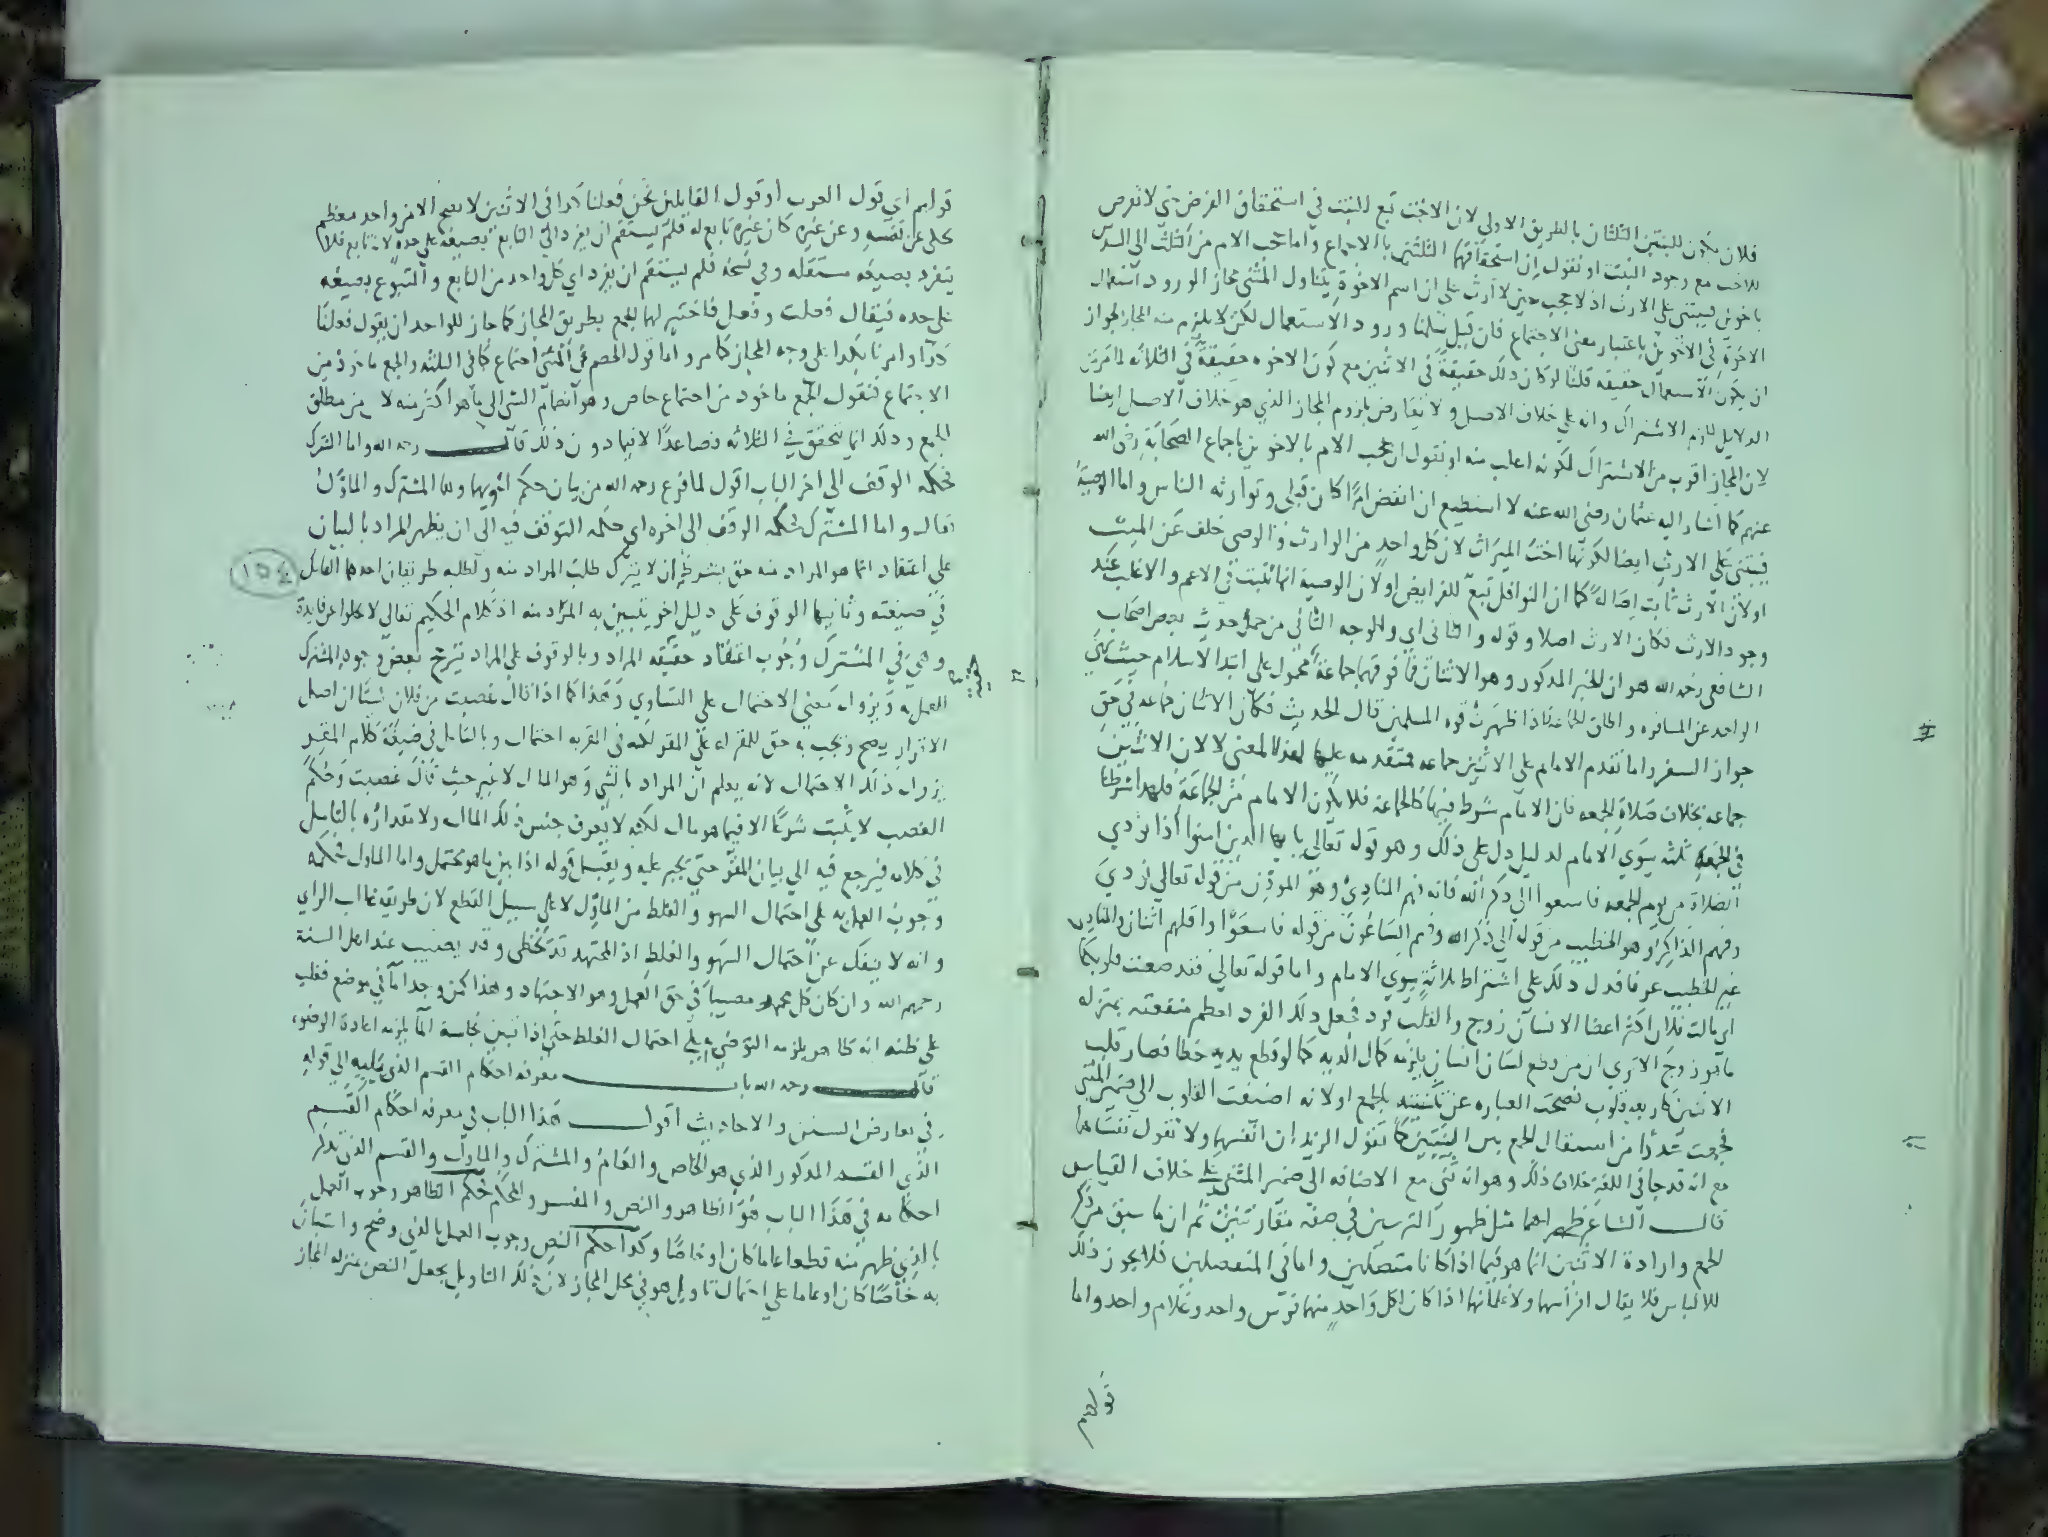 فلان يكون للبنتين الثلثان بالطريق الاولى لان الاخت تبع للبنت في استحقاق الفرض حتى لا تفرض
للاخت مع وجود البنت او نقول ان استحقاقهما الثلثين بالاجماع واما حجب الام من الثلث الى السدس
باخوين فيبتنى على الارث اذ لا حجب حيث لا ارث على ان اسم الاخوة يتناول المثنى مجازا لورود استعمال
الاخوة في الاخوين باعتبار معنى الاجتماع فان قيل سلمنا ورود الاستعمال لكن لا يلزم منه المجاز لجواز
ان يكون الاستعمال حقيقة قلنا لو كان ذلك حقيقة في الاثنين مع كون الاخوة حقيقة في الثلاثة لما مر من
الدلايل للزم الاشتراك وانه على خلاف الاصل ولا تعارض بلزوم المجاز الذي هو خلاف الاصل ايضا
لان المجاز اقرب من الاشتراك لكونه اغلب منه او نقول ان حجب الام بالاخوين باجماع الصحابة رضى الله
عنهم كما اشار اليه عثمان رضى الله عنه لا استطيع ان انقض امرا كان قبلى وتوارثه الناس واما الوصية
فيبتنى على الارث ايضا لكونها اخت الميراث لان كل واحد من الوارث والوصى خلف عن الميت
او لان الارث ثابت اصالة كما ان النوافل تبع للفرايض او لان الوصية انما تثبت في الاعم والاغلب عند
وجود الارث فكان الارث اصلا وقوله والثاني اي والوجه الثاني من حمل حديث بعض اصحاب
الشافعى رحمه الله هو ان الخبر المذكور وهو الاثنان فما فوقهما جماعة محمول على ابتدا الاسلام حيث نهى
الواحد عن المسافره واطلق للجماعة فاذا ظهرت قوة المسلمين قال الحديث فكان الاثنان جماعة في حق
جواز السفر واما تقدم الامام على الاثنين جماعه فتقدمه عليهما لهذا المعنى لا لان الاثنين
جماعه بخلاف صلاة الجمعه فان الامام شرط فيها كالجماعة فلا يكون الامام من الجماعة فلهذا شرطنا
في الجمعة ثلثه سوى الامام لدليل دل على ذلك وهو قوله تعالى يا ايها الذين امنوا اذا نودي
للصلاة من يوم الجمعه فاسعوا الى ذكر الله فانه فهم المنادى وهو الموذن من قوله تعالى نودي
وفهم الذاكر وهو الخطيب من قوله الى ذكر الله وفهم الساعون من قوله فاسعوا واقلهم اثنان والمنادى
غير الخطيب عرفا فدل ذلك على اشتراط ثلاثة سوى الامام واما قوله تعالى فقد صغت قلوبكما
اي مالت فلان اكثر اعضا الانسان زوج والقلب فرد فجعل ذلك الفرد اعظم منفعته بمنزله
ما هو زوج الا ترى ان من قطع لسان انسان يلزمه كمال الديه كما لو قطع يديه خطا فصار قلب
الاثنين كاربعه قلوب فصحت العباره عن تثنيته بالجمع او لانه اضيفت القلوب الى ضمير المثنى
فجمعت تحرزا من استثقال الجمع بين التثنيتين كما تقول الزيدان انفسهما ولا تقول نفساهما
مع انه قد جا في اللغة خلاف ذلك وهو انه ثنى مع الاضافه الى ضمير المثنى على خلاف القياس
قال الشاعر ظهراهما مثل ظهور الترسين في صفة متقاربتين ثم ان ما سبق من ذكر
الجمع وارادة الاثنين انما هو فيما اذا كانا متصلين واما في المنفصلين فلا يجوز ذلك
للالباس فلا يقال افراسهما ولا غلمانهما اذا كان لكل واحد منهما فرس واحد وغلام واحد واما
قولهم
قولهم اي قول العرب او قول القايلين نحن فعلنا كذا في الاثنين لا يصح الا من واحد معظم
يحكى عن نفسه وعن غيره كان غيره تابع له فلم يستقم ان يفرد التابع بصيغة على حدة لان التابع فلا
يتفرد بصيغه مستقله وفي نسخة فلم يستقم ان يفرد اي كل واحد من التابع والمتبوع بصيغه
على حده فيقال فعلت وفعل فاختير لهما الجمع بطريق المجاز كما جاز للواحد ان يقول فعلنا
كذا وامرنا بكذا على وجه المجاز كما مر واما قول الخصم في المثنى اجتماع كما في الثلثه والجمع ماخوذ من
الاجتماع فنقول الجمع ماخوذ من اجتماع خاص وهو انضمام الشى الى ما هو اكثر منه لا من مطلق
الجمع وذلك انما يتحقق في الثلاثه فصاعدا لا فيما دون ذلك قال رحمه الله واما المشترك
فحكمه الوقف الى اخر الباب اقول لما فرغ رحمه الله من بيان حكم اخويهما وهما المشترك والماول
فقال واما المشترك فحكمه الوقف الى اخره اي حكمه التوقف فيه الى ان يظهر المراد بالبيان
على اعتقاد انما هو المراد منه حق بشرط ان لا يترك طلب المراد منه ولطلبه طريقان احدهما التامل
في صيغته وثانيهما الوقوف على دليل اخر يتبين به المراد منه اذ كلام الحكيم تعالى لا يخلوا عن فايدة
وهي في المشترك وجوب اعتقاد حقيقه المراد وبالوقوف على المراد يترجح بعض وجوه المشترك
للعمل به ويزول معنى الاحتمال على التساوي وهذا كما اذا قال غصبت من فلان شيا ان اصل
الاقرار يصح ويجب به حق للمقر له على المقر لكنه في المقر به احتمال وبالتامل في صيغة كلام المقر
يزول ذلك الاحتمال لانه يعلم ان المراد بالشي وهو المال لا غير حيث قال غصبت وحكم
الغصب لا يثبت شرعا الا فيما هو مال لكنه لا يعرف جنس ذلك المال ولا مقداره بالتامل
في كلامه فيرجع فيه الى بيان المقر حتى يجبر عليه ويقبل قوله اذا بين ما هو محتمل واما الماول فحكمه
وجوب العمل به على احتمال السهو والغلط من الماول لا على سبيل القطع لان طريقه غالب الراي
وانه لا ينفك عن احتمال السهو والغلط اذ المجتهد قد يخطى وقد يصيب عند اهل السنة
رحمهم الله وان كان كل مجتهد مصيبا في حق العمل وهو الاجتهاد وهذا كمن وجد ما في موضع فغلب
على ظنه انه طاهر يلزمه التوضي به على احتمال الغلط حتى اذا تبين نجاسة الما يلزمه اعادة الوضوء
قال رحمه الله باب معرفه احكام القسم الذي يليه الى قوله
في تعارض السنن والاحاديث اقول هذا الباب في معرفة احكام القسم
الذي القسم المذكور الذي هو الخاص والعام والمشترك والماول والقسم الذي يذكر
احكامه في هذا الباب هو الظاهر والنص والمفسر والمحكم فحكم الظاهر وجوب العمل
بالذي ظهر منه قطعا عاما كان او خاصا وكذا حكم النص وجوب العمل بالذي وضح واستبان
به خاصا كان او عاما على احتمال تاويل هو في محل المجاز لان ذلك التاويل يجعل النص بمنزله المجاز
١٥٤